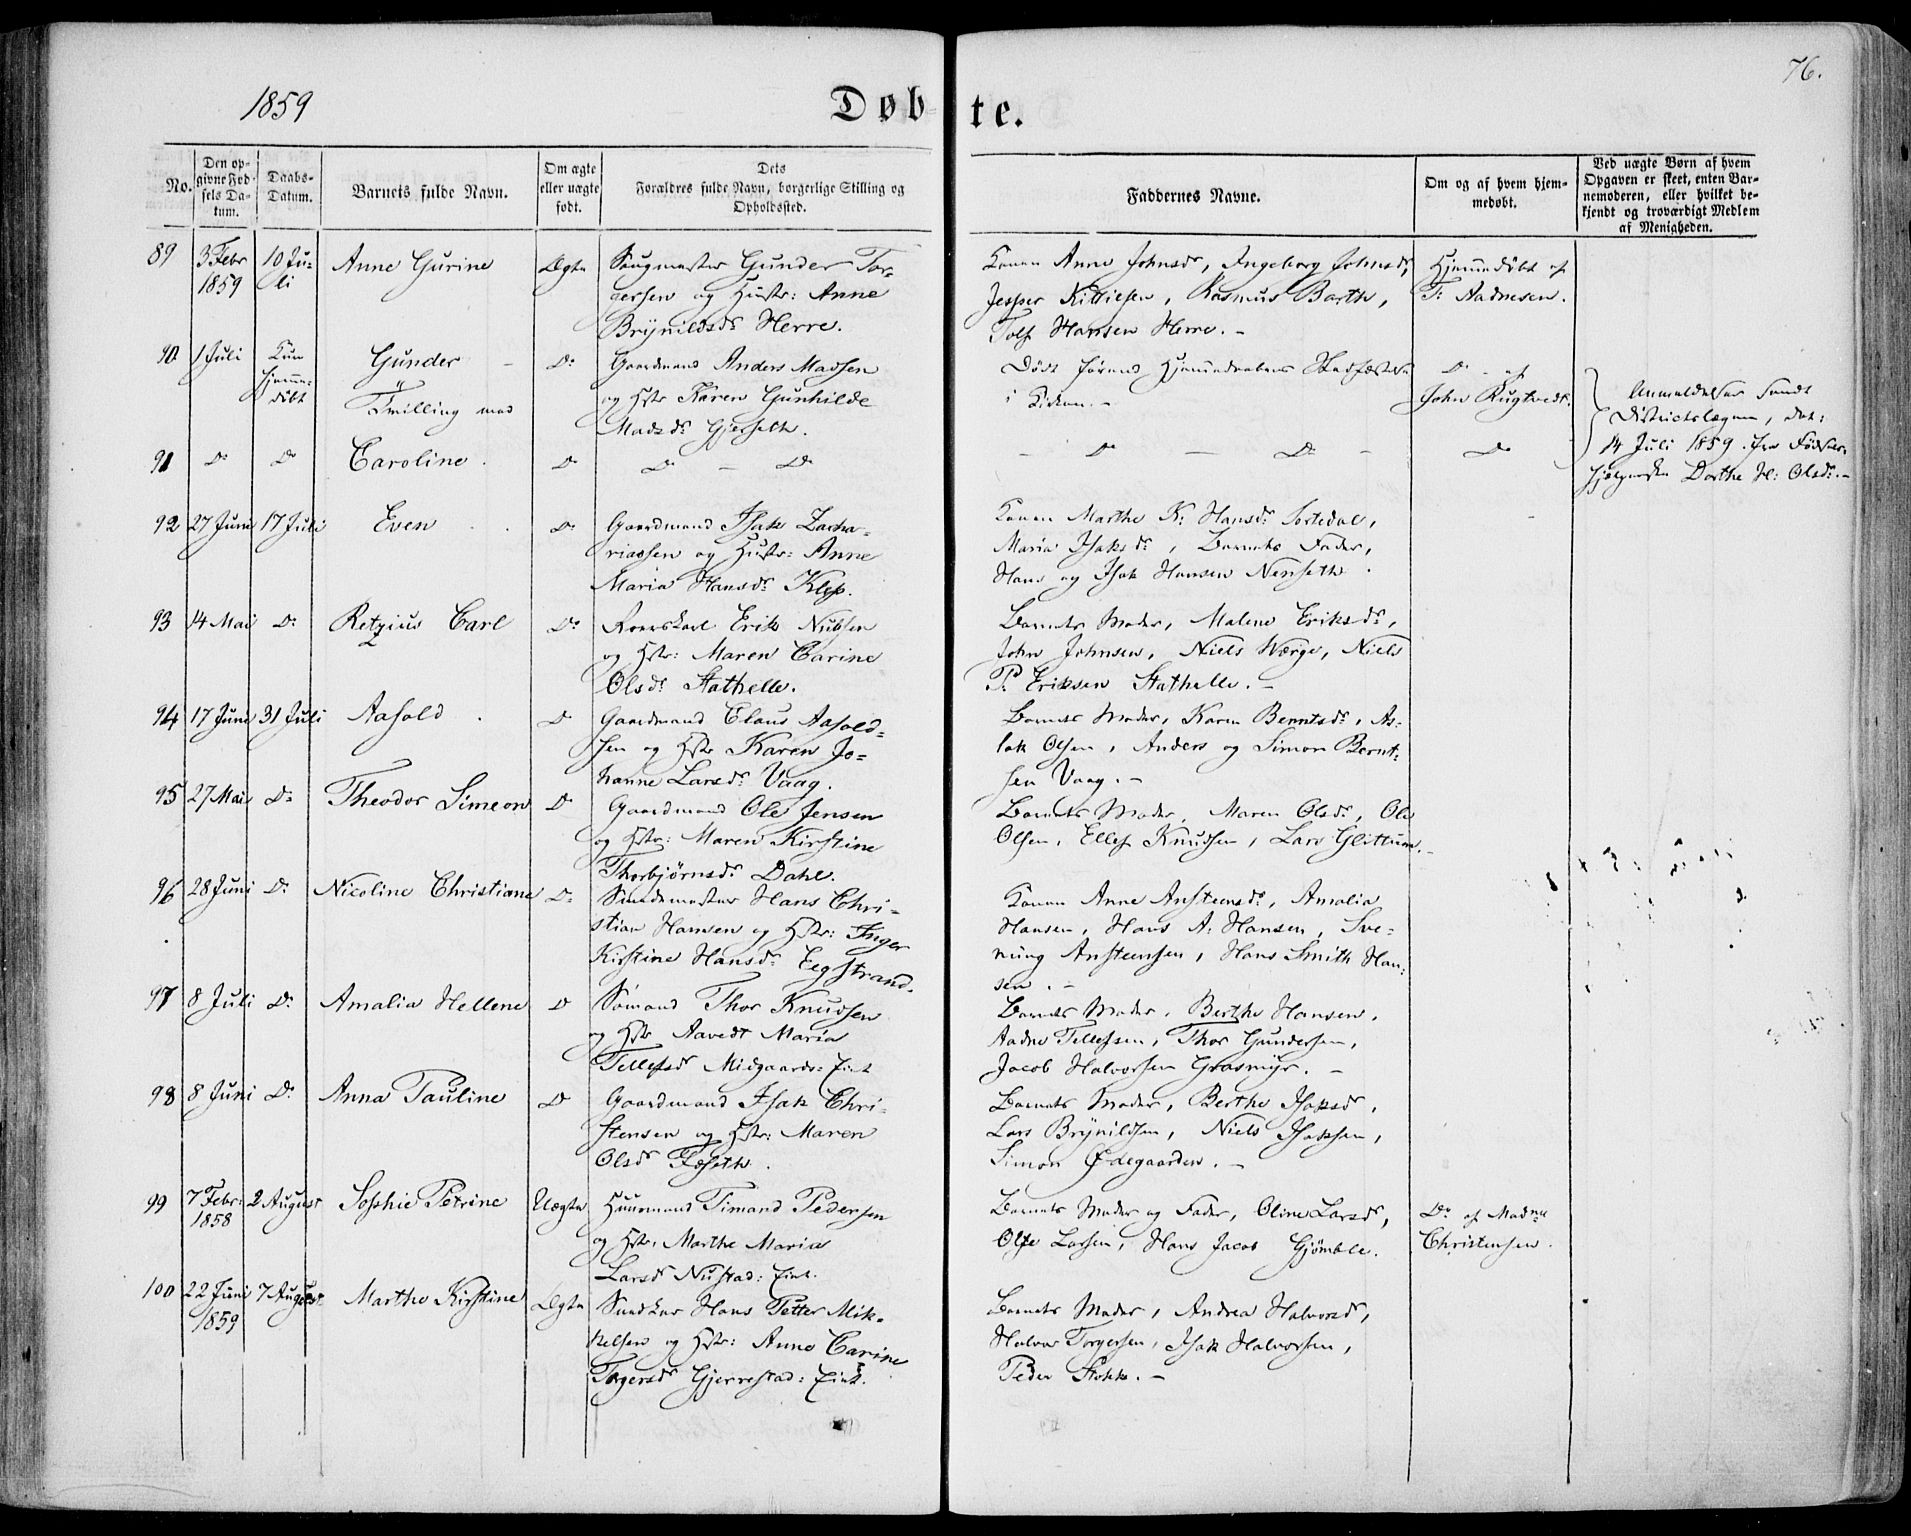 1859
Døbte.
76.
No.
Den opgivne Fødsels Datum.
Daabs-Datum.
Barnets fulde Navn.
Om ægte eller uægte født.
Dets Forældres fulde Navn, borgerlige Stilling og Opholdssted.
Faddernes Navne.
Om og af hvem hjemmedøbt.
Ved uægte Børn af hvem Opgaven er skeet, enten Barnemoderen, eller hvilket bekjendt og troværdigt Medlem af Menigheden.
89 3 Febr 1859 10 Juli Anne Gurine Ægte
Saugmester Gunder Tor-
gersen og Hustr: Anne
Brynildsdr Herre.
Konen Anne Johnsdr, Ingeborg Johnsdr,
Jesper Kittilsen, Rasmus Barth,
Tolf Hansen Herre. -
Hjemmedøbt af
T: Aadnesen.
90 1 Juli Kun hjemme-døbt Gunder - Do
Tvilling med
Gaardmand Anders Madsen
og Hstr Karen Gunhilde
Madsdr Gjerseth.
Død førend Hjemmedaabens Stadfæstelse
i Kirken. -
Do af
John Rugtvedt.
Anmeldelse sendt
Districtslægen, dat:
14 Juli 1859. fra Fødsels-
hjelpersken Dorthe H: Olsdr. -
91 Do Do Caroline. Do Do - Do
- Do - Do - Do
92 27 Juni 17 Juli Even Do
Gaardmand Isak Zacha-
riassen og Hustr: Anne
Maria Hansdr Klep.
Konen Marthe K: Hansdr Sortedal,
Maria Isaksdr, Barnets Fader,
Hans og Isak Hansen Nenseth.
93 14 Mai Do Retzius Carl Do
Erik Nielsen
og Hstr: Maren Carine
Olsdr Stathelle.
Barnets Moder, Malene Eriksdr,
John Johnsen, Niels Værge, Niels
P: Eriksen Stathelle. -
94 17 Juni 31 Juli Aasold. Do
Gaardmand Claus Aasold-
sen og Hstr Karen Jo-
hanne Larsdr Vaag.
Barnets Moder, Karen Berntsdr, As-
lak Olsen, Anders og Simon Bernt-
sen Vaag. -
95 27 Mai Do Theodor Simeon Do
Gaardmand Ole Jensen
og Hstr: Maren Kirstine
Thorbjørnsdr Dahl.
Barnets Moder, Maren Olsdr, Ole
Olsen, Ellef Knudsen, Lars Glittum. -
96 28 Juni Do Nicoline Christiane Do
Smedemester Hans Chri-
stian Hansen og Hstr: Inger
Kirstine Hansdr Eegstrand.
Konen Anne Ansteensdr, Amalia
Hansen, Hans A: Hansen, Sve-
nung Ansteensen, Hans Smith Han-
sen. -
97 8 Juli Do Amalia Hellene Do
Sømand Thor Knudsen
og Hstr Aavedt Maria
Tellefsdr Midgaards: Eiet
Barnets Moder, Berthe Hansen,
Aadne Tellefsen, Thor Gundersen,
Jacob Halvorsen Grasmyr. -
98 8 Juni Do Anna Pauline Do
Gaardmand Isak Chri-
stensen og Hstr: Maren
Olsdr Foseth.
Barnets Moder, Berthe Isaksdr,
Lars Brynildsen, Niels Isaksen,
Simon Ødegaarden. -
99 7 Febr: 1858 2 August Sophie Petrine Uægte
Huusmand Timand Pedersen
og Hstr, Marthe Maria
Larsdr Nustad: Eiet.
Barnets Moder og Fader, Oline Larsdr,
Olfe Larsen, Hans Jacob Gjømble.
Do af Madme
Christensen.
100 22 Juni 1859 7 August Marthe Kirstine Ægte
Hans Petter Mik-
kelsen og Hstr: Anne Carine
Torgersdr Gjerrestad: Eiet.
Barnets Moder, Andrea Halvorsdr,
Halvor Torgersen, Isak Halvorsen,
Peder Stokke. -